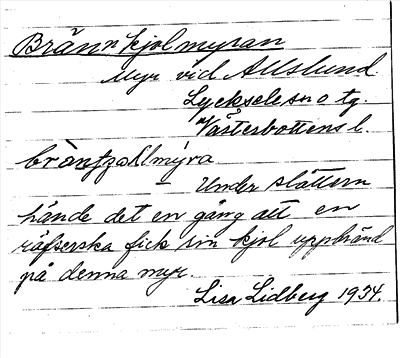 Brännkjolmyran
Myr vid Allslund
Lycksele sn o tg.
Västerbottens l.
bräntȷolmýra
— Under slåttern
hände det en gång att en
räfserska fick sin kjol uppbränd
på denna myr.
Lisa Lidberg 1934.